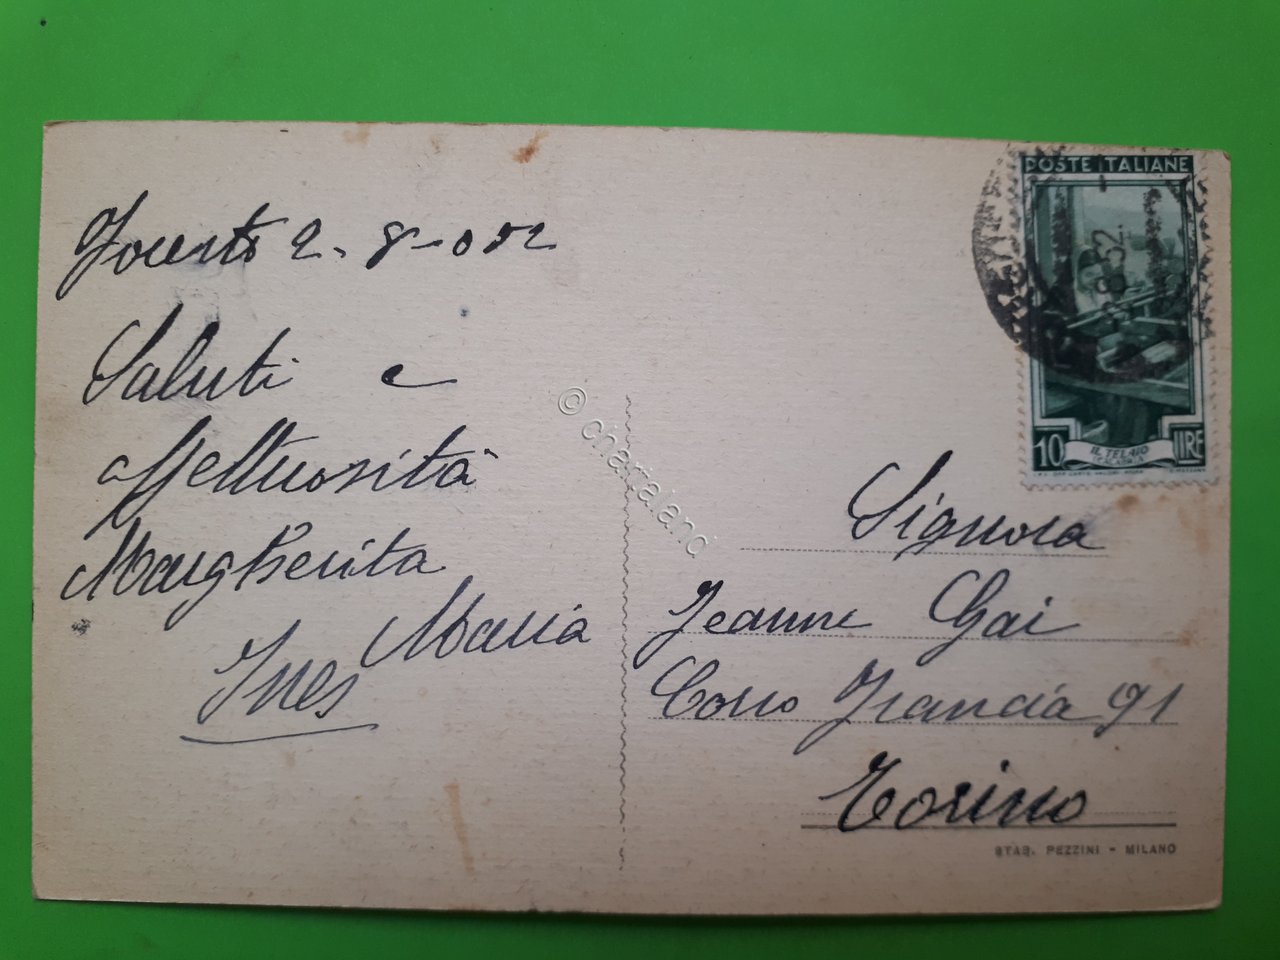 2. 8-052
Saluti e
affettuosità
Margherita
Maria
Ines
© chartaland
POSTE ITALIANE
8.52
10 LIRE
IL TELAIO
Signora
Jeanne Gai
Corso Francia 91
Torino
STAB. PEZZINI - MILANO